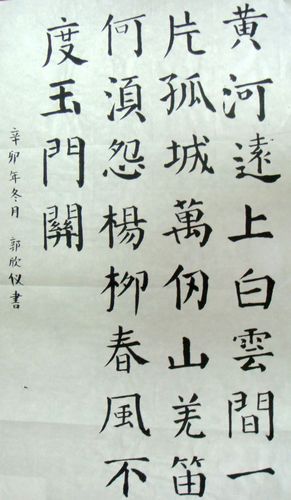 黄河遠上白雲間一
片孤城萬仞山羌笛
何須怨楊柳春風不
度玉門關
辛卯年冬月 郭欣儀書